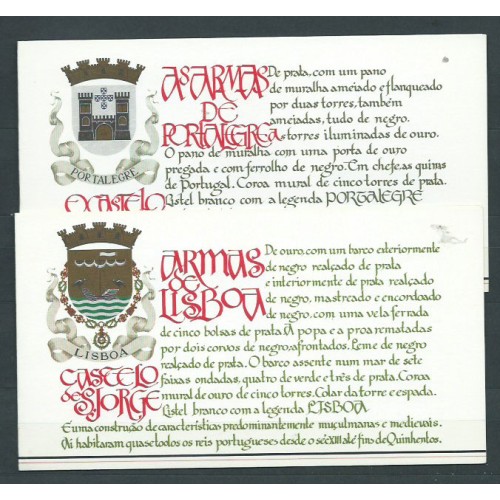 AS ARMAS
DE
PORTALEGRE
De prata, com um pano
de muralha ameiado e flanqueado
por duas torres, também
ameiadas, tudo de negro.
As torres iluminadas de ouro.
O pano de muralha com uma porta de ouro
pregada e com ferrolho de negro. Em chefe, as quinas
de Portugal. Coroa mural de cinco torres de prata.
Listel branco com a legenda PORTALEGRE
PORTALEGRE
O CASTELO
ARMAS
DE
LISBOA
De ouro, com um barco exteriormente
de negro realçado de prata
e interiormente de prata realçado
de negro, mastreado e encordoado
de negro, com uma vela ferrada
de cinco bolsas de prata. A popa e a proa rematadas
por dois corvos de negro, afrontados. Leme de negro
realçado de prata. O barco assente num mar de sete
faixas ondadas, quatro de verde e três de prata. Coroa
mural de ouro de cinco torres. Colar da torre e espada.
Listel branco com a legenda LISBOA
LISBOA
CASTELO
de S. JORGE
E uma construção de características predominantemente muçulmanas e medievais.
Aí habitaram quase todos os reis portugueses desde o séc XIII até fins de Quinhentos.